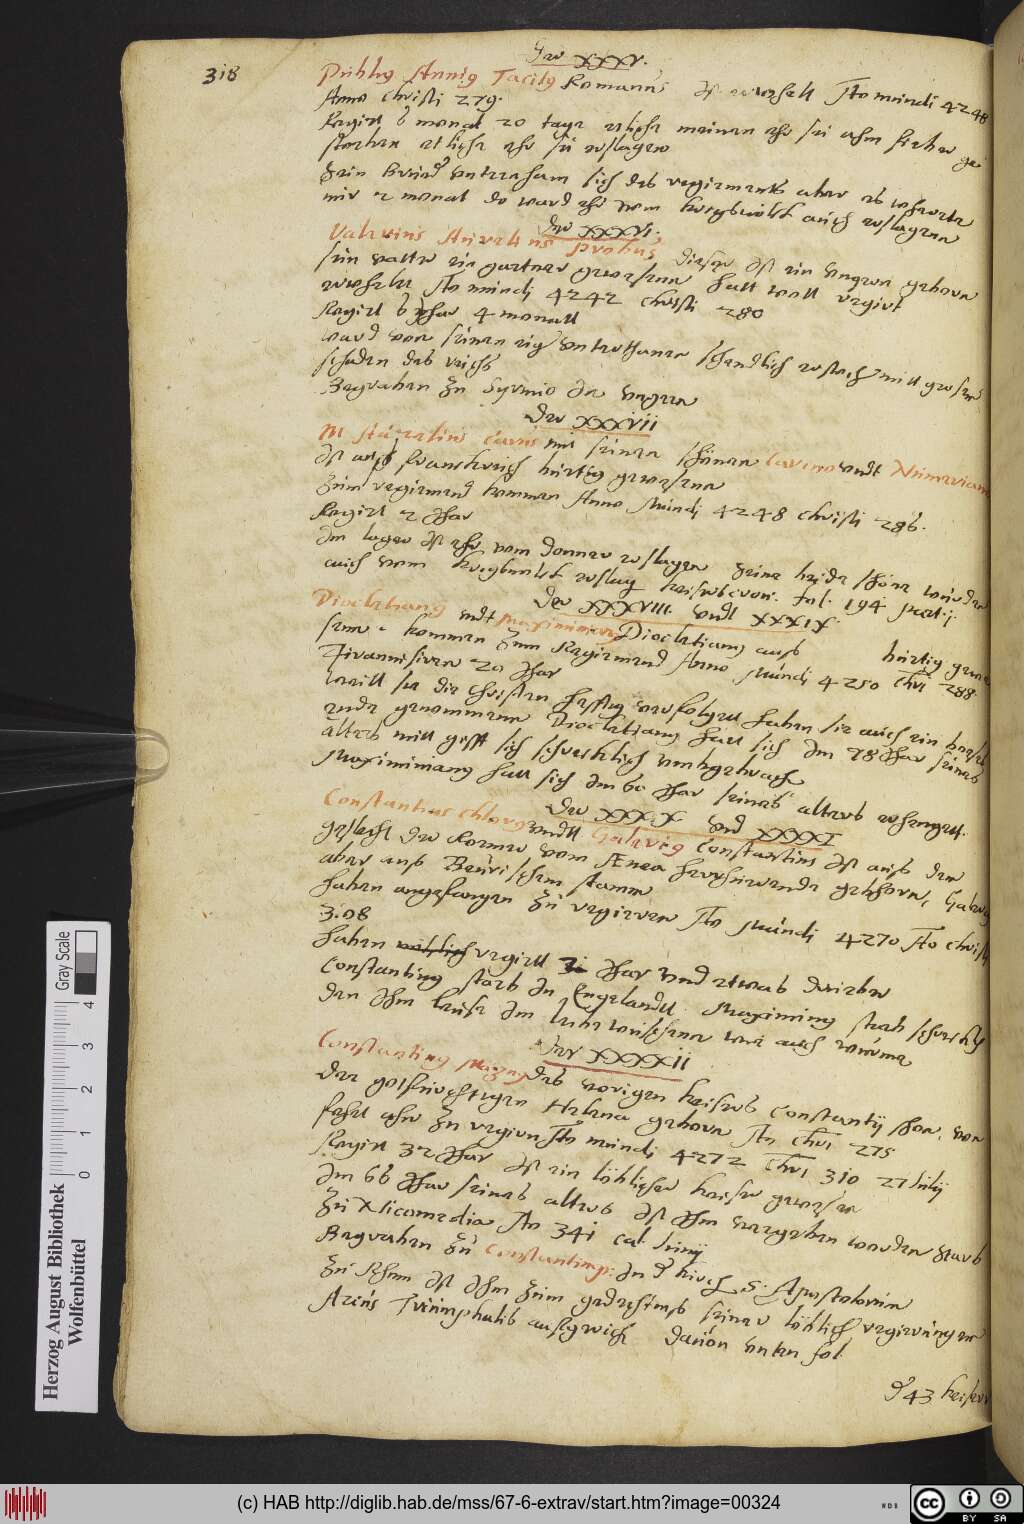 318
Der XXXV.
Publius Annius Tacitus Romanus ist erwehelt Ao mundi 4248
Anno Christi 279.
Regirt 6 monat 20 tage etliche meinen ehr sei ahm fieber ge
storben etliche ehr sei erslagen
Sein bruder unternham sich des regiments aber es wherete
nur 2 monat do ward ehr vom kriegsvolck auch erslagenn
Der XXXVI.
Valerius Aurelius Probus dieser ist ein Ungern geborn
sein vatter ein gartner gewesenn hatt woll regirt
erwhelet Ao mundi 4242 Christi 280
Regirt 6 Jhar 4 monatt
ward von seinen eig unterthanen schendlich erstoch mitt grosem
schaden des reichs
Begraben zu Syrmio in Ungern
Der XXXVII
M Aurelius Carus mit seinen shönen Carino undt Numeriano
ist aus franckreich burtig gewesenn
zum regirment kommen Anno Mundi 4248 Christi 286.
Regirt 2 Jhar
Im lager ist ehr vom donner erslagen seine beide shöne wurden
auch vom kriegsvolck erslag keisercron. fol. 194 part. j.
Der XXXVIII. undt XXXIX.
Diocletianus undt Maximianus Diocletianus aus burtig gewe
senn kommen zum Regirment Anno Mundi 4250 Chri 288.
Tirannisiren 20 Jhar
weill sie die Christen hefftig verfolgett haben sie auch ein boeses
ende genommenn Diocletianus hatt sich im 78 Jhar seines
alters mitt gifft sich schrecklich umbgebracht
Maximianus hatt sich im 60 Jhar seines alters erhengett.
Der XXXX und XXXXI
Constantius Chlorus undtt Galerius Constantius ist aus dem
geslecht der Romer vom Ænea herrhurende gebhorn, Galerius
aber aus Beurischem stamm
haben angefangen zu regieren Ao Mundi 4270 Ao Christi
3.08
haben regirtt 2 Jhar und etwas druber
Constantinus starb in Engelandtt Maximinus starb schrecklich
den ihm leuse im leibe wuchsenn wie auch wurme
Der XXXXII
Constantinus Magnus des vorigen keisers Constantij shon, von
der gotsfurchtigen Helena geborn Ao Chri 275
fehet ahn zu regirn Ao mundi 4272 Chri 310 27 Julij
Regirt 32 Jhar ist ein löblicher keiser gewesen
Im 66 Jhar seines alters ist ihm vergeben worden starb
zu Nicomedia Ao 341 cal Junij
Begraben zu Constantinop: in d kirch S. Apostolorum
zu Rhom ist ihm zum gedechtnus seiner löblich regierungen
Arcus Triumphalis auffgericht davon unten fol.
d 43 keiser
Herzog August Bibliothek
Wolfenbüttel
0 1 2 3 4
Gray Scale
(c) HAB http://diglib.hab.de/mss/67-6-extrav/start.htm?image=00324
WDB
CC BY SA